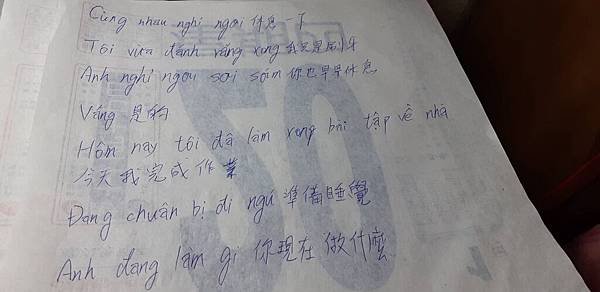 Cùng nhau nghỉ ngơi 休息一下
Tôi vừa đánh răng xong 我完是刷牙
Anh nghỉ ngơi sơi sớm 你也早早休息
Vâng 是的
Hôm nay tôi đã làm rong bài tập về nhà
今天我完成作業
Đang chuẩn bị đi ngủ 準備睡覺
Anh đang làm gì 你現在做什麼
02